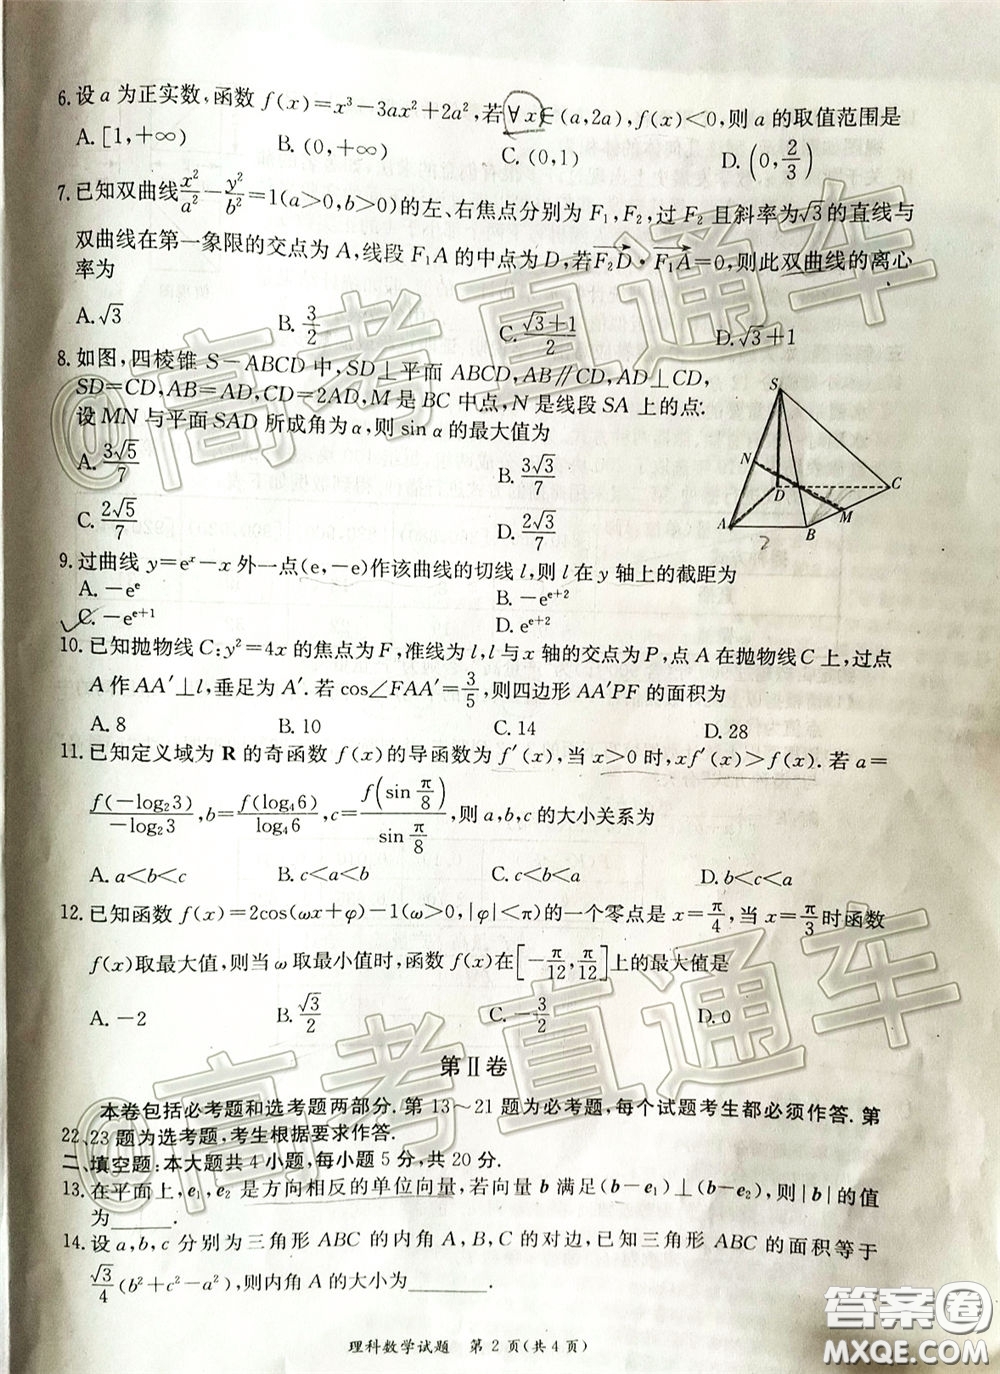 6.设a为正实数,函数f(x)=x³-3ax²+2a²,若∀x∈(a,2a),f(x)<0,则a的取值范围是
A.[1,+∞) B.(0,+∞) C.(0,1) D.(0,2/3)
7.已知双曲线x²/a²-y²/b²=1(a>0,b>0)的左、右焦点分别为F₁,F₂,过F₂且斜率为√3的直线与
双曲线在第一象限的交点为A,线段F₁A的中点为D,若F₂D·F₁A=0,则此双曲线的离心
率为
A.√3 B.3/2 C.(√3+1)/2 D.√3+1
8.如图,四棱锥S-ABCD中,SD⊥平面ABCD,AB∥CD,AD⊥CD,
SD=CD,AB=AD,CD=2AD,M是BC中点,N是线段SA上的点.
设MN与平面SAD所成角为α,则sinα的最大值为
A.3√5/7 B.3√3/7
C.2√5/7 D.2√3/7
S
N
D
C
M
A
B
2
9.过曲线y=eˣ-x外一点(e,-e)作该曲线的切线l,则l在y轴上的截距为
A.-e^e B.-e^(e+2)
C.-e^(e+1) D.e^(e+2)
10.已知抛物线C:y²=4x的焦点为F,准线为l,l与x轴的交点为P,点A在抛物线C上,过点
A作AA′⊥l,垂足为A′.若cos∠FAA′=3/5,则四边形AA′PF的面积为
A.8 B.10 C.14 D.28
11.已知定义域为R的奇函数f(x)的导函数为f′(x),当x>0时,xf′(x)>f(x).若a=
f(-log₂3)/(-log₂3),b=f(log₄6)/log₄6,c=f(sin π/8)/(sin π/8),则a,b,c的大小关系为
A.a<b<c B.c<a<b C.c<b<a D.b<a<c
12.已知函数f(x)=2cos(ωx+φ)-1(ω>0,|φ|<π)的一个零点是x=π/4,当x=π/3时函数
f(x)取最大值,则当ω取最小值时,函数f(x)在[-π/12,π/12]上的最大值是
A.-2 B.√3/2 C.-3/2 D.0
第Ⅱ卷
本卷包括必考题和选考题两部分.第13~21题为必考题,每个试题考生都必须作答.第
22、23题为选考题,考生根据要求作答.
二、填空题:本大题共4小题,每小题5分,共20分.
13.在平面上,e₁,e₂是方向相反的单位向量,若向量b满足(b-e₁)⊥(b-e₂),则|b|的值
为______.
14.设a,b,c分别为三角形ABC的内角A,B,C的对边,已知三角形ABC的面积等于
√3/4(b²+c²-a²),则内角A的大小为______.
理科数学试题 第2页(共4页)
@高考直通车
@高考直通车
答案卷
MXQE.COM